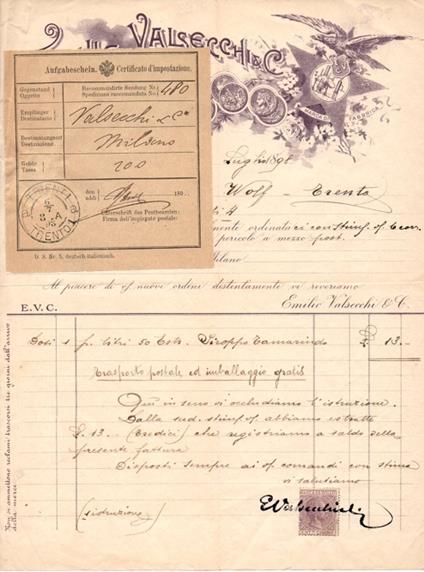 VALSECCHI & C.
MARCA DI FABBRICA
Aufgabeschein. Certificato d'impostazione.
Gegenstand
Oggetto
Recommandirte Sendung Nr
Spedizione raccomandata No
480
Empfänger
Destinatario
Valsecchi & Co
Bestimmungsort
Destinazione
Milano
Gebür
Tassa
den
addì
180
Unterschrift des Postbeamten:
Firma dell'impiegato postale:
TRIENT
TRENTO
D. S. Nr. 5, deutsch italienisch.
Luglio 898
Wolf - Trento
pericolo a mezzo post.
Milano
Al piacere di nuovi ordini distintamente vi reveriamo
Emilio Valsecchi & C.
E. V. C.
Dosi 1 p. litri 50 Estr. Siroppo Tamarindo 13.-
Trasporto postale ed imballaggio gratis
Qui in seno vi accludiamo l'istruzione.
Dalla sud. stim. abbiamo estratto
L. 13.- (Tredici) che registriamo a saldo della
presente fattura
Disposti sempre ai comandi con stima
vi salutiamo
(istruzione)
EValsecchi
Non si ammettono reclami trascorsi tre giorni dall'arrivo
della merce